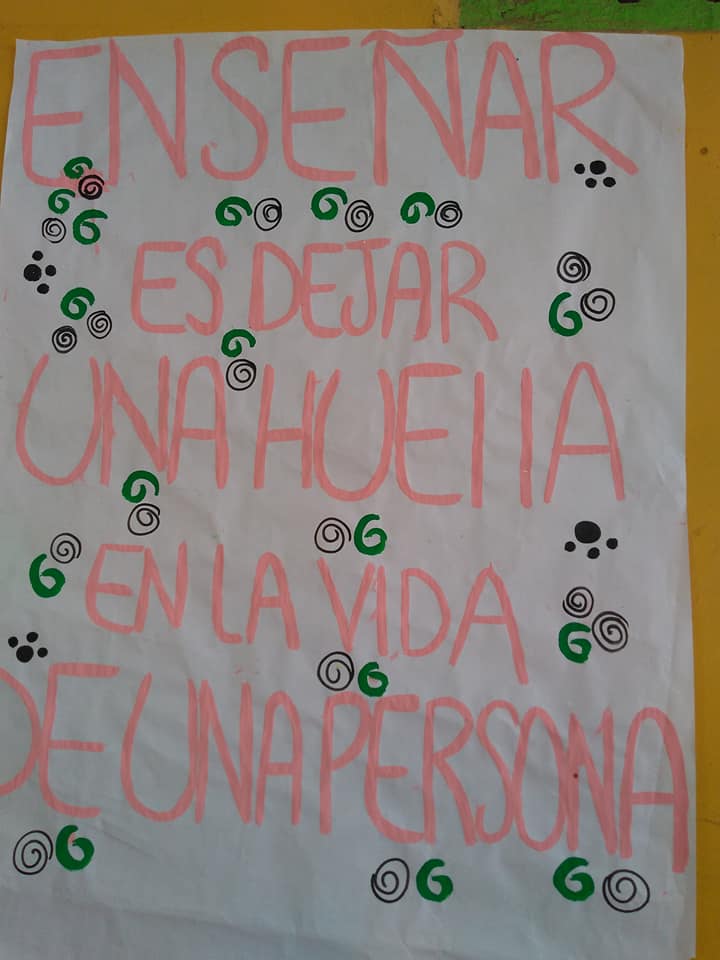 ENSEÑAR
ES DEJAR
UNA HUEllA
EN LA VIDA
DE UNA PERSONA